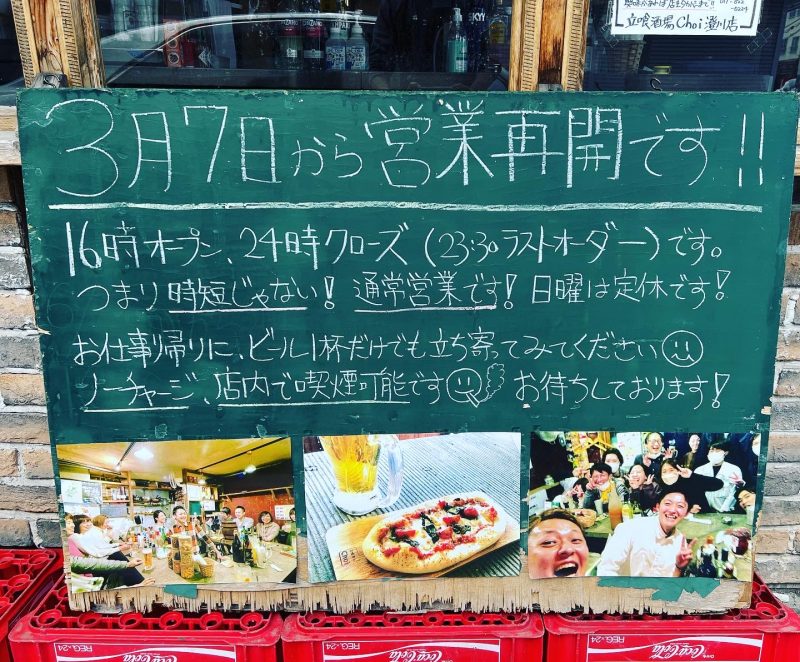 立喰酒場 Choi 澄川店
3月7日から営業再開です!!
16時オープン、24時クローズ(23:30ラストオーダー)です。
つまり時短じゃない! 通常営業です! 日曜は定休です!
お仕事帰りに、ビール1杯だけでも立ち寄ってみてください
ノーチャージ、店内で喫煙可能です お待ちしております!
REG.24
Coca-Cola
REG.24
Coca-Cola
REG.24
Coca-Cola